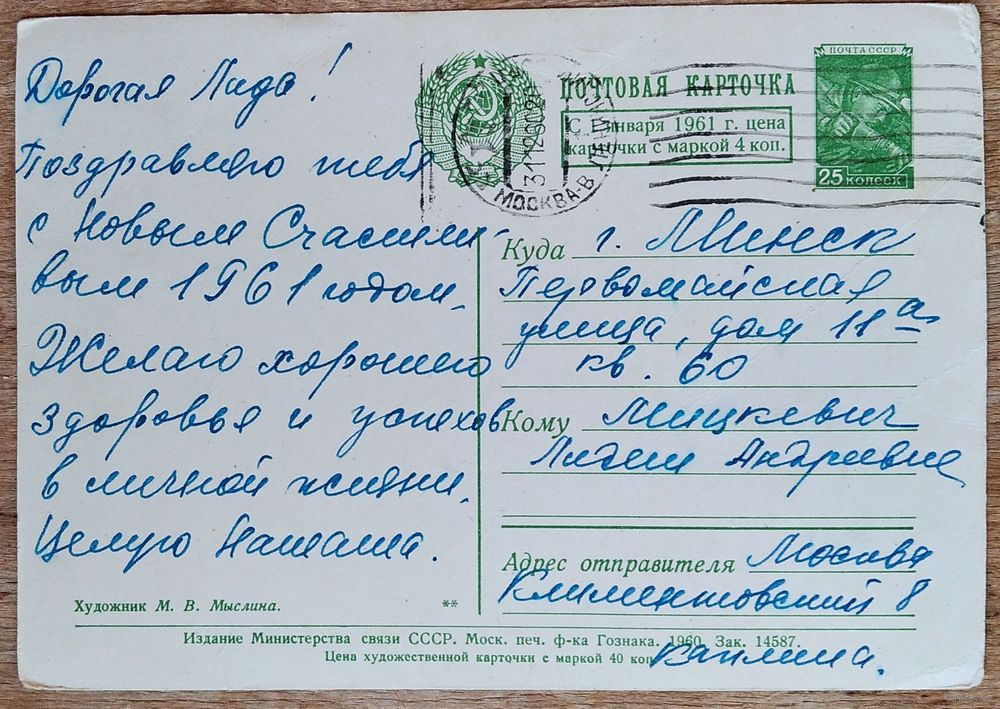 Дорогая Лида!
Поздравляю тебя
с Новым Счастли-
вым 1961 годом.
Желаю хорошего
здоровья и успехов
в личной жизни.
Целую Наташа.
Художник М. В. Мыслина.
**
ПОЧТОВАЯ КАРТОЧКА
С 1 января 1961 г. цена
карточки с маркой 4 коп.
ПОЧТА СССР
25 КОПЕЕК
МОСКВА-В
Куда г. Минск
Первомайская
улица, дом 11а
кв. 60
Кому Мицкевич
Лидии Андреевне
Адрес отправителя Москва
Климентовский 8
Издание Министерства связи СССР. Моск. печ. ф-ка Гознака. 1960. Зак. 14587.
Цена художественной карточки с маркой 40 коп.